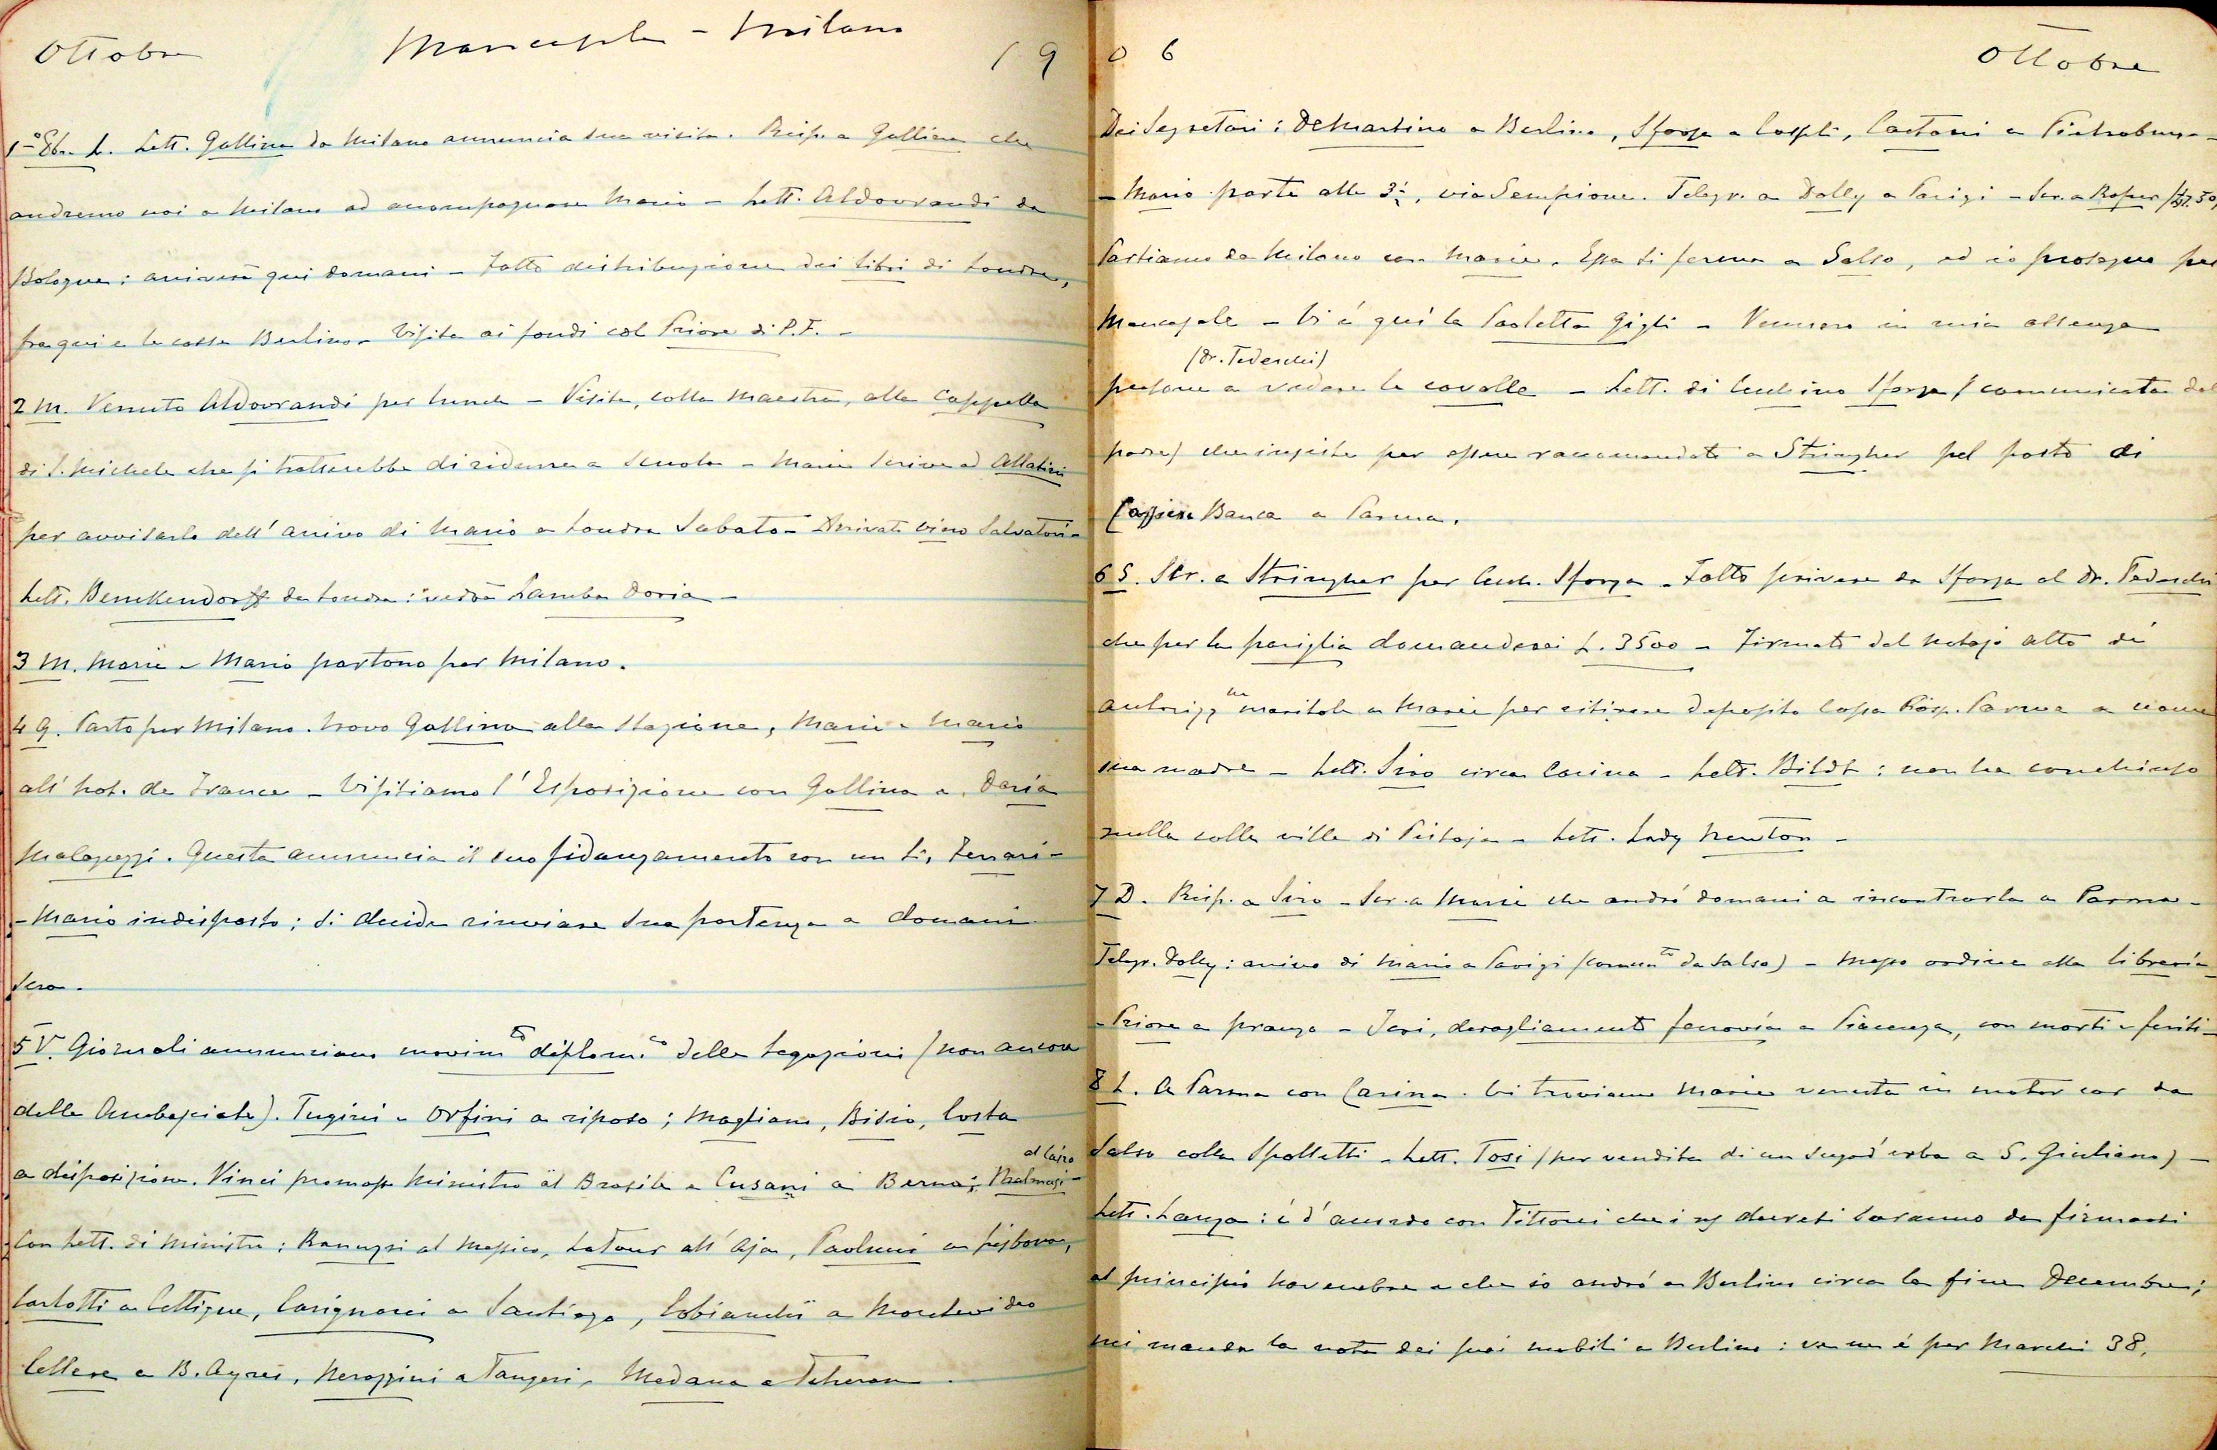 Ottobre
Mancasale - Milano
19
1º 8bre L. Lett. Gallina da Milano annuncia sua visita. Risp. a Gallina che
andremo noi a Milano ad accompagnare Mario - Lett. Aldovrandi da
Bologna: arriverà qui domani - Fatto distribuzione dei libri di Londra,
fra qui e le casse Berlino - Visita ai fondi col Priore di P.F. -
2 M. Venuto Aldovrandi per lunch - Visita, colla maestra, alla Cappella
di S. Michele che si tratterebbe di ridurre a scuola - Marie scrive ad Allatini
per avvisarlo dell'arrivo di Mario a Londra Sabato - Arrivato vino Salvatori -
Lett. Benckendorff da Londra: vedrà Lamba Doria -
3 M. Marie e Mario partono per Milano.
4 G. Parto per Milano. trovo Gallina alla stazione, Marie e Mario
all'hot. de France - Visitiamo l'Esposizione con Gallina e Daria
Malaguzzi. Questa annuncia il suo fidanzamento con un Sr. Ferrari -
- Mario indisposto; si decide rinviare sua partenza a domani
sera.
5 V. Giornali annunciano movimto diplom.co delle Legazioni (non ancora
delle Ambasciate). Tugini e Orfini a riposo; Magliano, Bisio, Costa
a disposizione. Vinci promosso Ministro al Brasile e Cusani a Berna; Malmusi
al Cairo
Con lett. di Ministro: Ranuzzi al Messico, Latour all'Aja, Paolucci a Lisbona,
Carlotti a Cettigne, Carignani a Santiago, Cobianchi a Montevideo
Cellere a B. Ayres, Nerazzini a Tangeri, Medana a Teheran.
06
Ottobre
Dei Segretari: DeMartino a Berlino, Sforza a Costpli, Caetani a Pietroburgo -
- Mario parte alle 3½, via Sempione. Telegr. a Dolly a Parigi - Scr. a Roper
Partiamo da Milano con Marie. Essa si ferma a Salso, ed io proseguo per
Mancasale - Vi è qui la Paoletta Gigli - Vennero in mia assenza
(Dr. Tedeschi)
persone a vedere le cavalle - Lett. di Cecchino Sforza (comunicata dal
padre) che insiste per essere raccomandato a Stringher pel posto di
Cassiere Banca a Parma.
6 S. Scr. a Stringher per Cecch. Sforza - Fatto scrivere da Sforza al Dr. Tedeschi
che per la pariglia domanderei L. 3500 - Firmato dal notajo atto di
autorizz.ne maritale a Marie per ritirare deposito Cassa Risp. Parma a nome
sua madre - Lett. Siro circa Carina - Lett. Bildt: non ha conchiuso
nulla colla villa di Pistoja - Lett. Lady Newton -
7 D. Risp. a Siro - Scr. a Marie che andrò domani a incontrarla a Parma -
Telegr. Dolly: arrivo di Mario a Parigi (comunto da Salso) - Messo ordine alla libreria -
- Priore a pranzo - Jeri, deragliamento ferrovia a Piacenza, con morti e feriti -
8 L. A Parma con Carina. Vi troviamo Marie venuta in motor car da
Salso colla Spalletti - Lett. Tosi (per vendita di un sugo d'erba a S. Giuliano) -
Lett. Lanza: è d'accordo con Tittoni che i decreti saranno da firmarsi
al principio Novembre e che io andrò a Berlino circa la fine Decembre;
mi manda la nota dei suoi mobili a Berlino: ve ne è per Marchi 38.